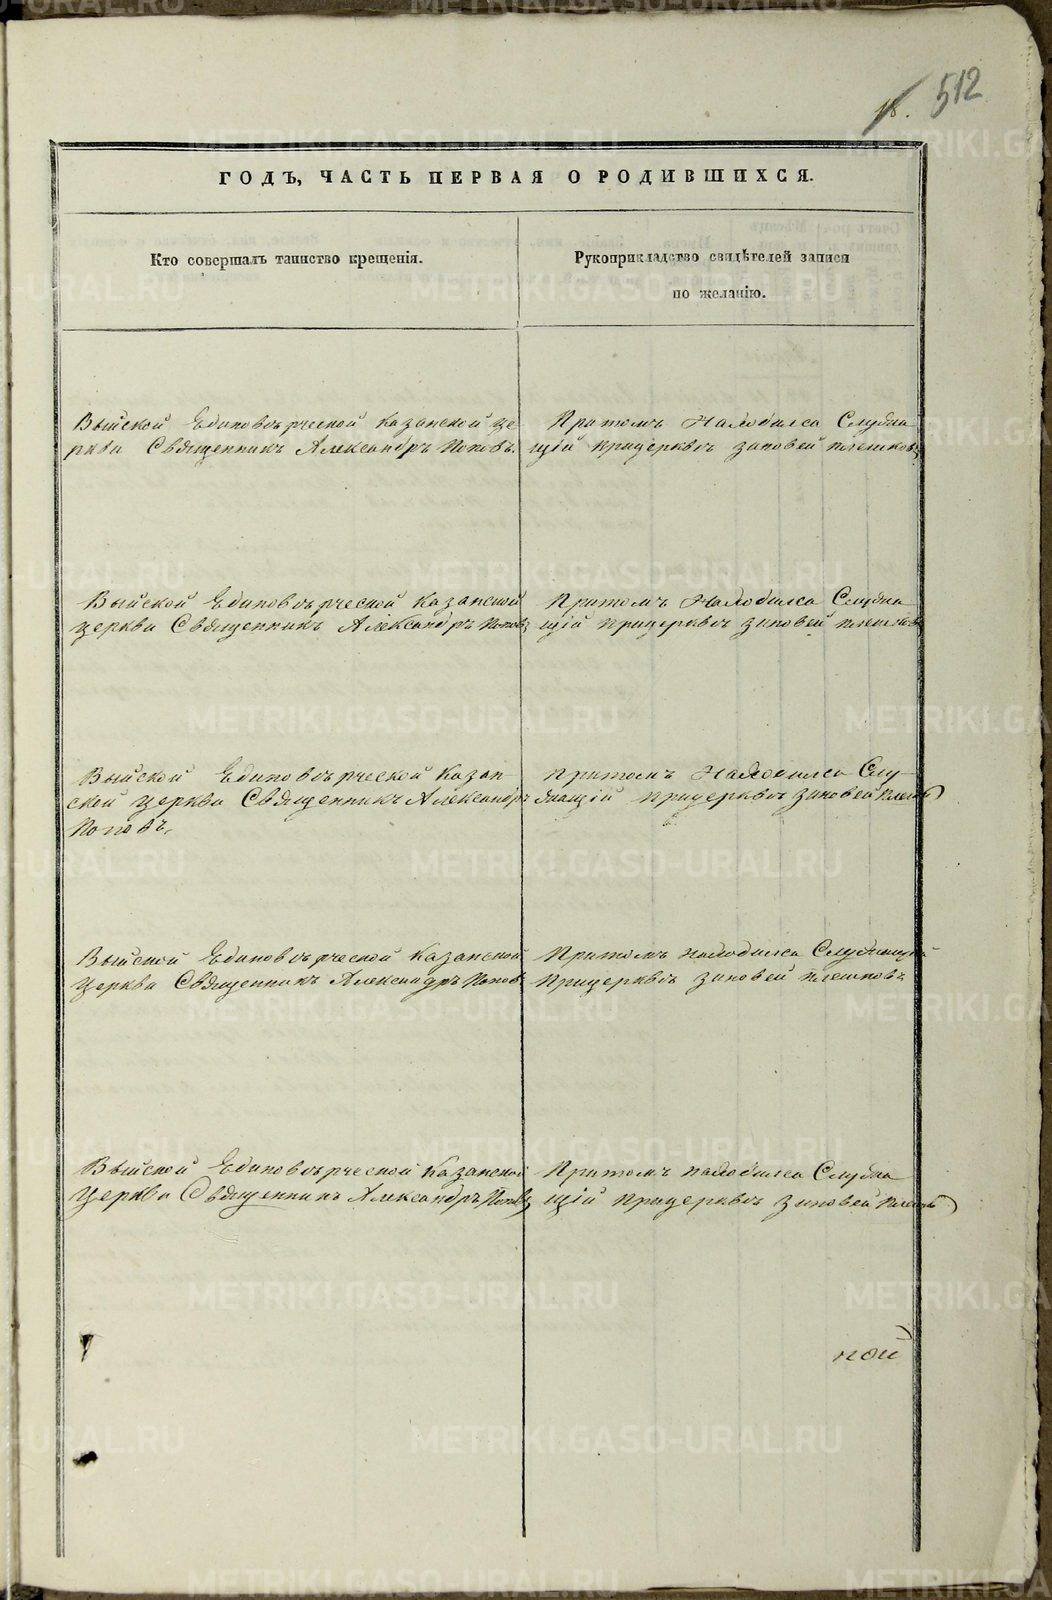 18. 512
ГОДЪ, ЧАСТЬ ПЕРВАЯ О РОДИВШИХСЯ.
Кто совершалъ таинство крещенія.
Рукоприкладство свидѣтелей записи
по желанію.
Выйской Единовѣрческой Казанской це
ркви Священникъ Александръ Поповъ.
Притомъ Находился Служа
щій прицерквѣ Зиновей Плешковъ
Выйской Единовѣрческой Казанской
церкви Священникъ Александръ Поповъ
Притомъ Находился Служа
щій прицерквѣ Зиновей Плешковъ
Выйской Единовѣрческой Казан-
ской церкви Священникъ Александръ
Поповъ.
Притомъ Находился Слу-
жащій прицерквѣ Зиновей
Выйской Единовѣрческой Казанской
церкви Священникъ Александръ Поповъ
Притомъ находился Служащій
прицерквѣ Зиновей Плешковъ
Выйской Единовѣрческой Казанской
церкви Священникъ Александръ Поповъ
Притомъ находился Служа
щій прицерквѣ Зиновей
ной
METRIKI.GASO-URAL.RU